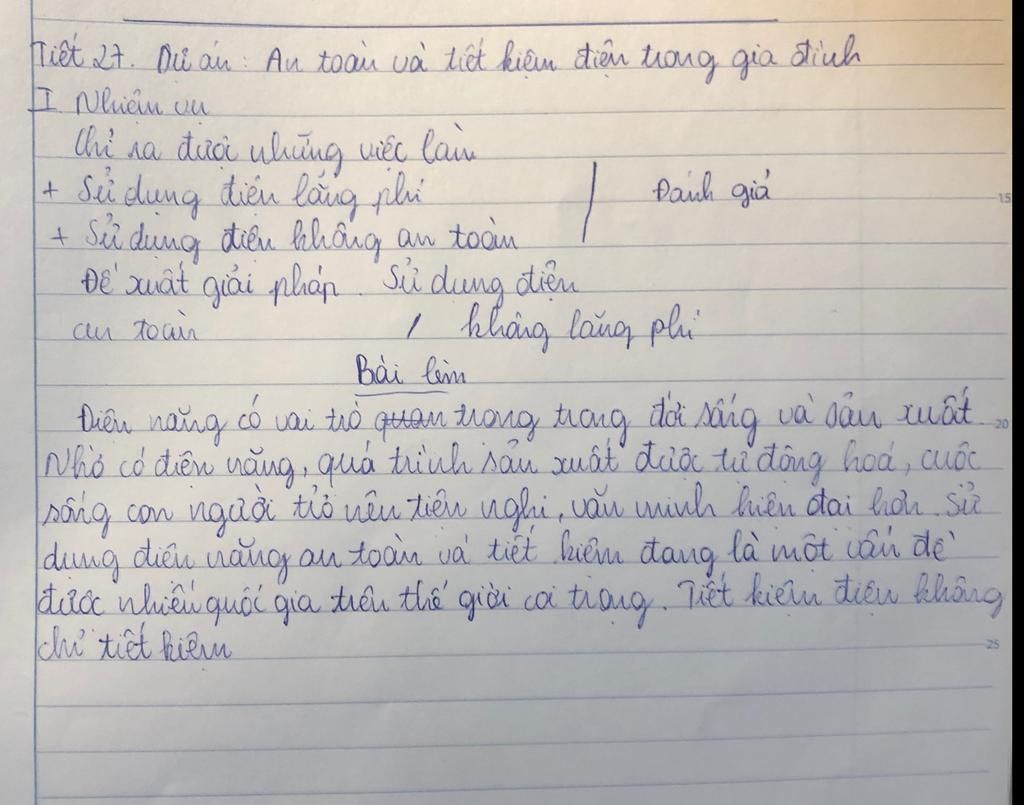 Tiết 27. Dự án: An toàn và tiết kiệm điện trong gia đình
I Nhiệm vụ
Chỉ ra được những việc làm
+ Sử dụng điện lãng phí
Đánh giá
+ Sử dụng điện không an toàn
Đề xuất giải pháp. Sử dụng điện
an toàn / không lãng phí
Bài làm
Điện năng có vai trò quan trọng trong đời sống và sản xuất.
Nhờ có điện năng, quá trình sản xuất được tự động hoá, cuộc
sống con người trở nên tiện nghi, văn minh hiện đại hơn. Sử
dụng điện năng an toàn và tiết kiệm đang là một vấn đề
được nhiều quốc gia trên thế giới coi trọng. Tiết kiệm điện không
chỉ tiết kiệm
15
20
25